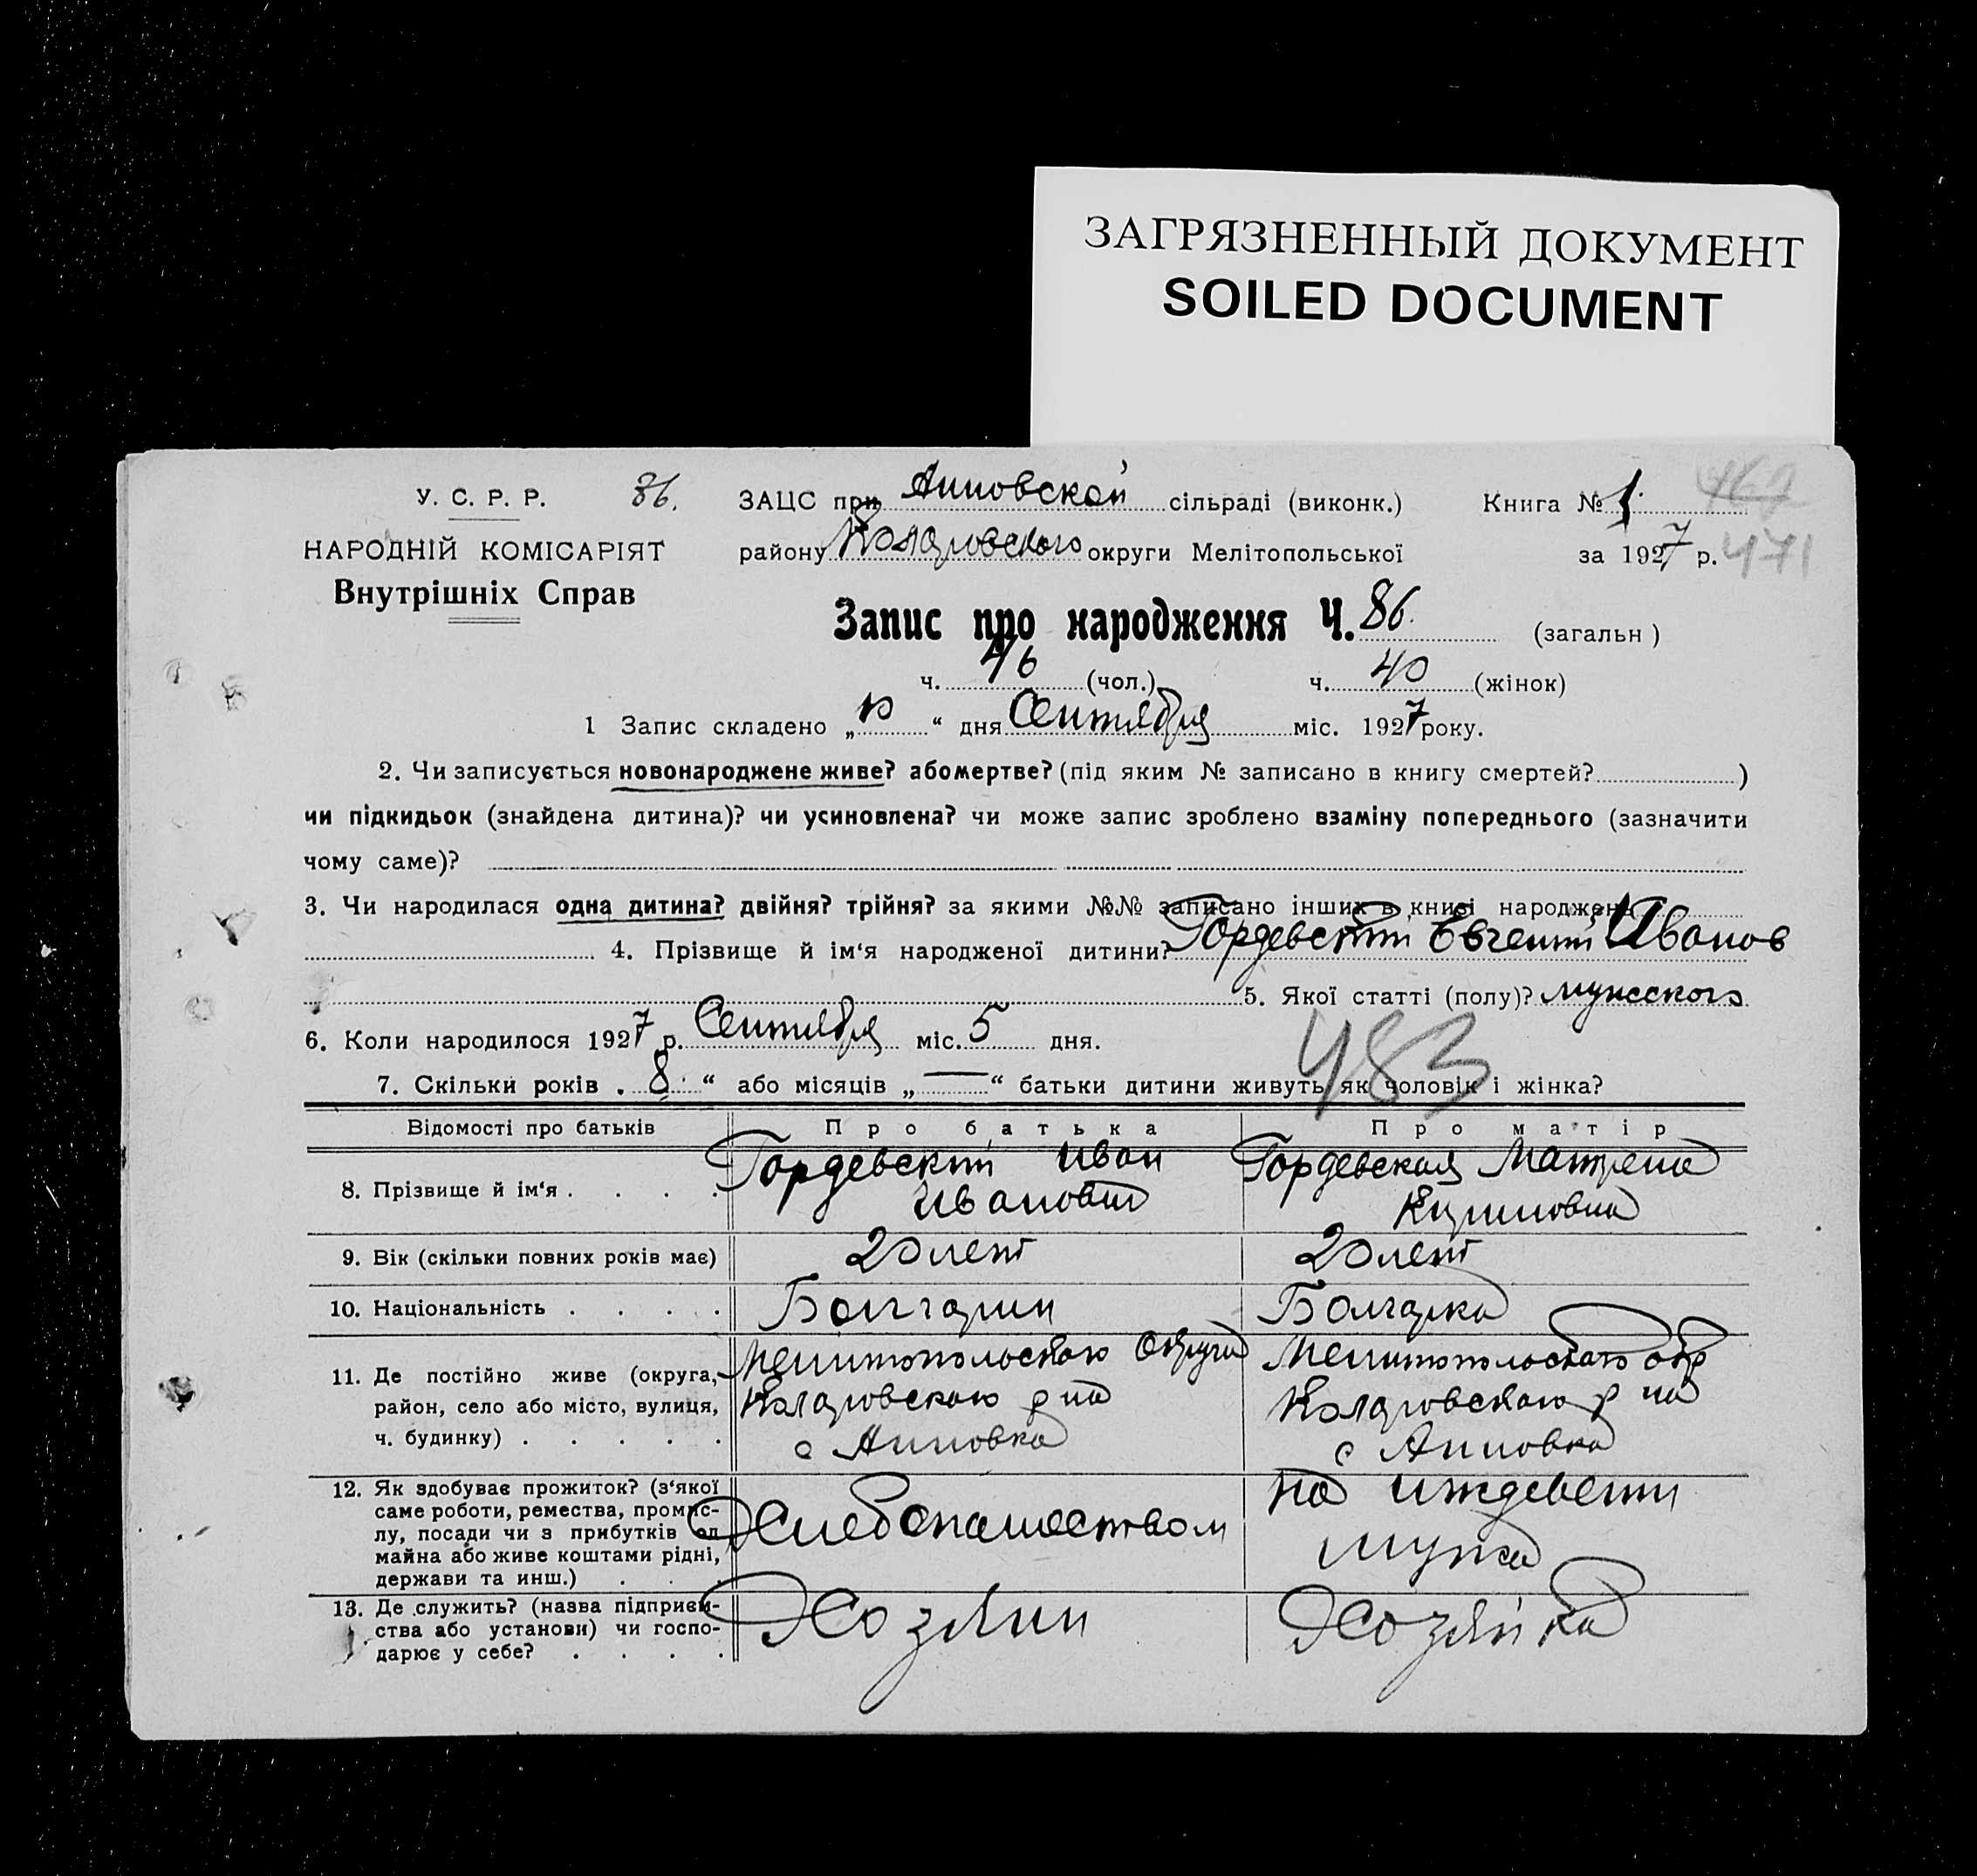 ЗАГРЯЗНЕННЫЙ ДОКУМЕНТ
SOILED DOCUMENT
У. С. Р. Р. 86. ЗАЦС при Анновской сільраді (виконк.) Книга № 1 467
НАРОДНІЙ КОМІСАРІЯТ району Коларовского округи Мелітопольської за 1927 р. 471
Внутрішніх Справ
Запис про народження Ч. 86. (загальн)
ч. 46 (чол.) ч. 40 (жінок)
1 Запис складено „10“ дня Сентября міс. 1927 року.
2. Чи записується новонароджене живе? або мертве? (під яким № записано в книгу смертей? )
чи підкидьок (знайдена дитина)? чи усиновлена? чи може запис зроблено взаміну попереднього (зазначити
чому саме)?
3. Чи народилася одна дитина? двійня? трійня? за якими №№ записано інших в книзі народжень
4. Прізвище й ім‘я народженої дитини? Гордевский Евгений Иванов
5. Якої статті (полу)? мужского
6. Коли народилося 1927 р. Сентября міс. 5 дня.
483
7. Скільки років „ 8 “ або місяців „ — “ батьки дитини живуть як чоловік і жінка?
Відомості про батьків Про батька Про матір
8. Прізвище й ім‘я . . . . Гордевский Иван Гордевская Матрена
Иванович Кириловна
9. Вік (скільки повних років має) 20 лет 20 лет
10. Національність . . . . Болгарин Болгарка
11. Де постійно живе (округа, Мелитопольского Округа Мелитопольского окр
район, село або місто, вулиця, Коларовского р на Коларовского р на
ч. будинку) . . . . . с Анновка с Анновка
12. Як здобуває прожиток? (з‘якої на иждевении
саме роботи, ремества, промис-
лу, посади чи з прибутків од Хлебопашеством мужа
майна або живе коштами рідні,
держави та инш.) . . .
13. Де служить? (назва підприєм- Хозяин Хозяйка
ства або установи) чи госпо-
дарює у себе? . . . .